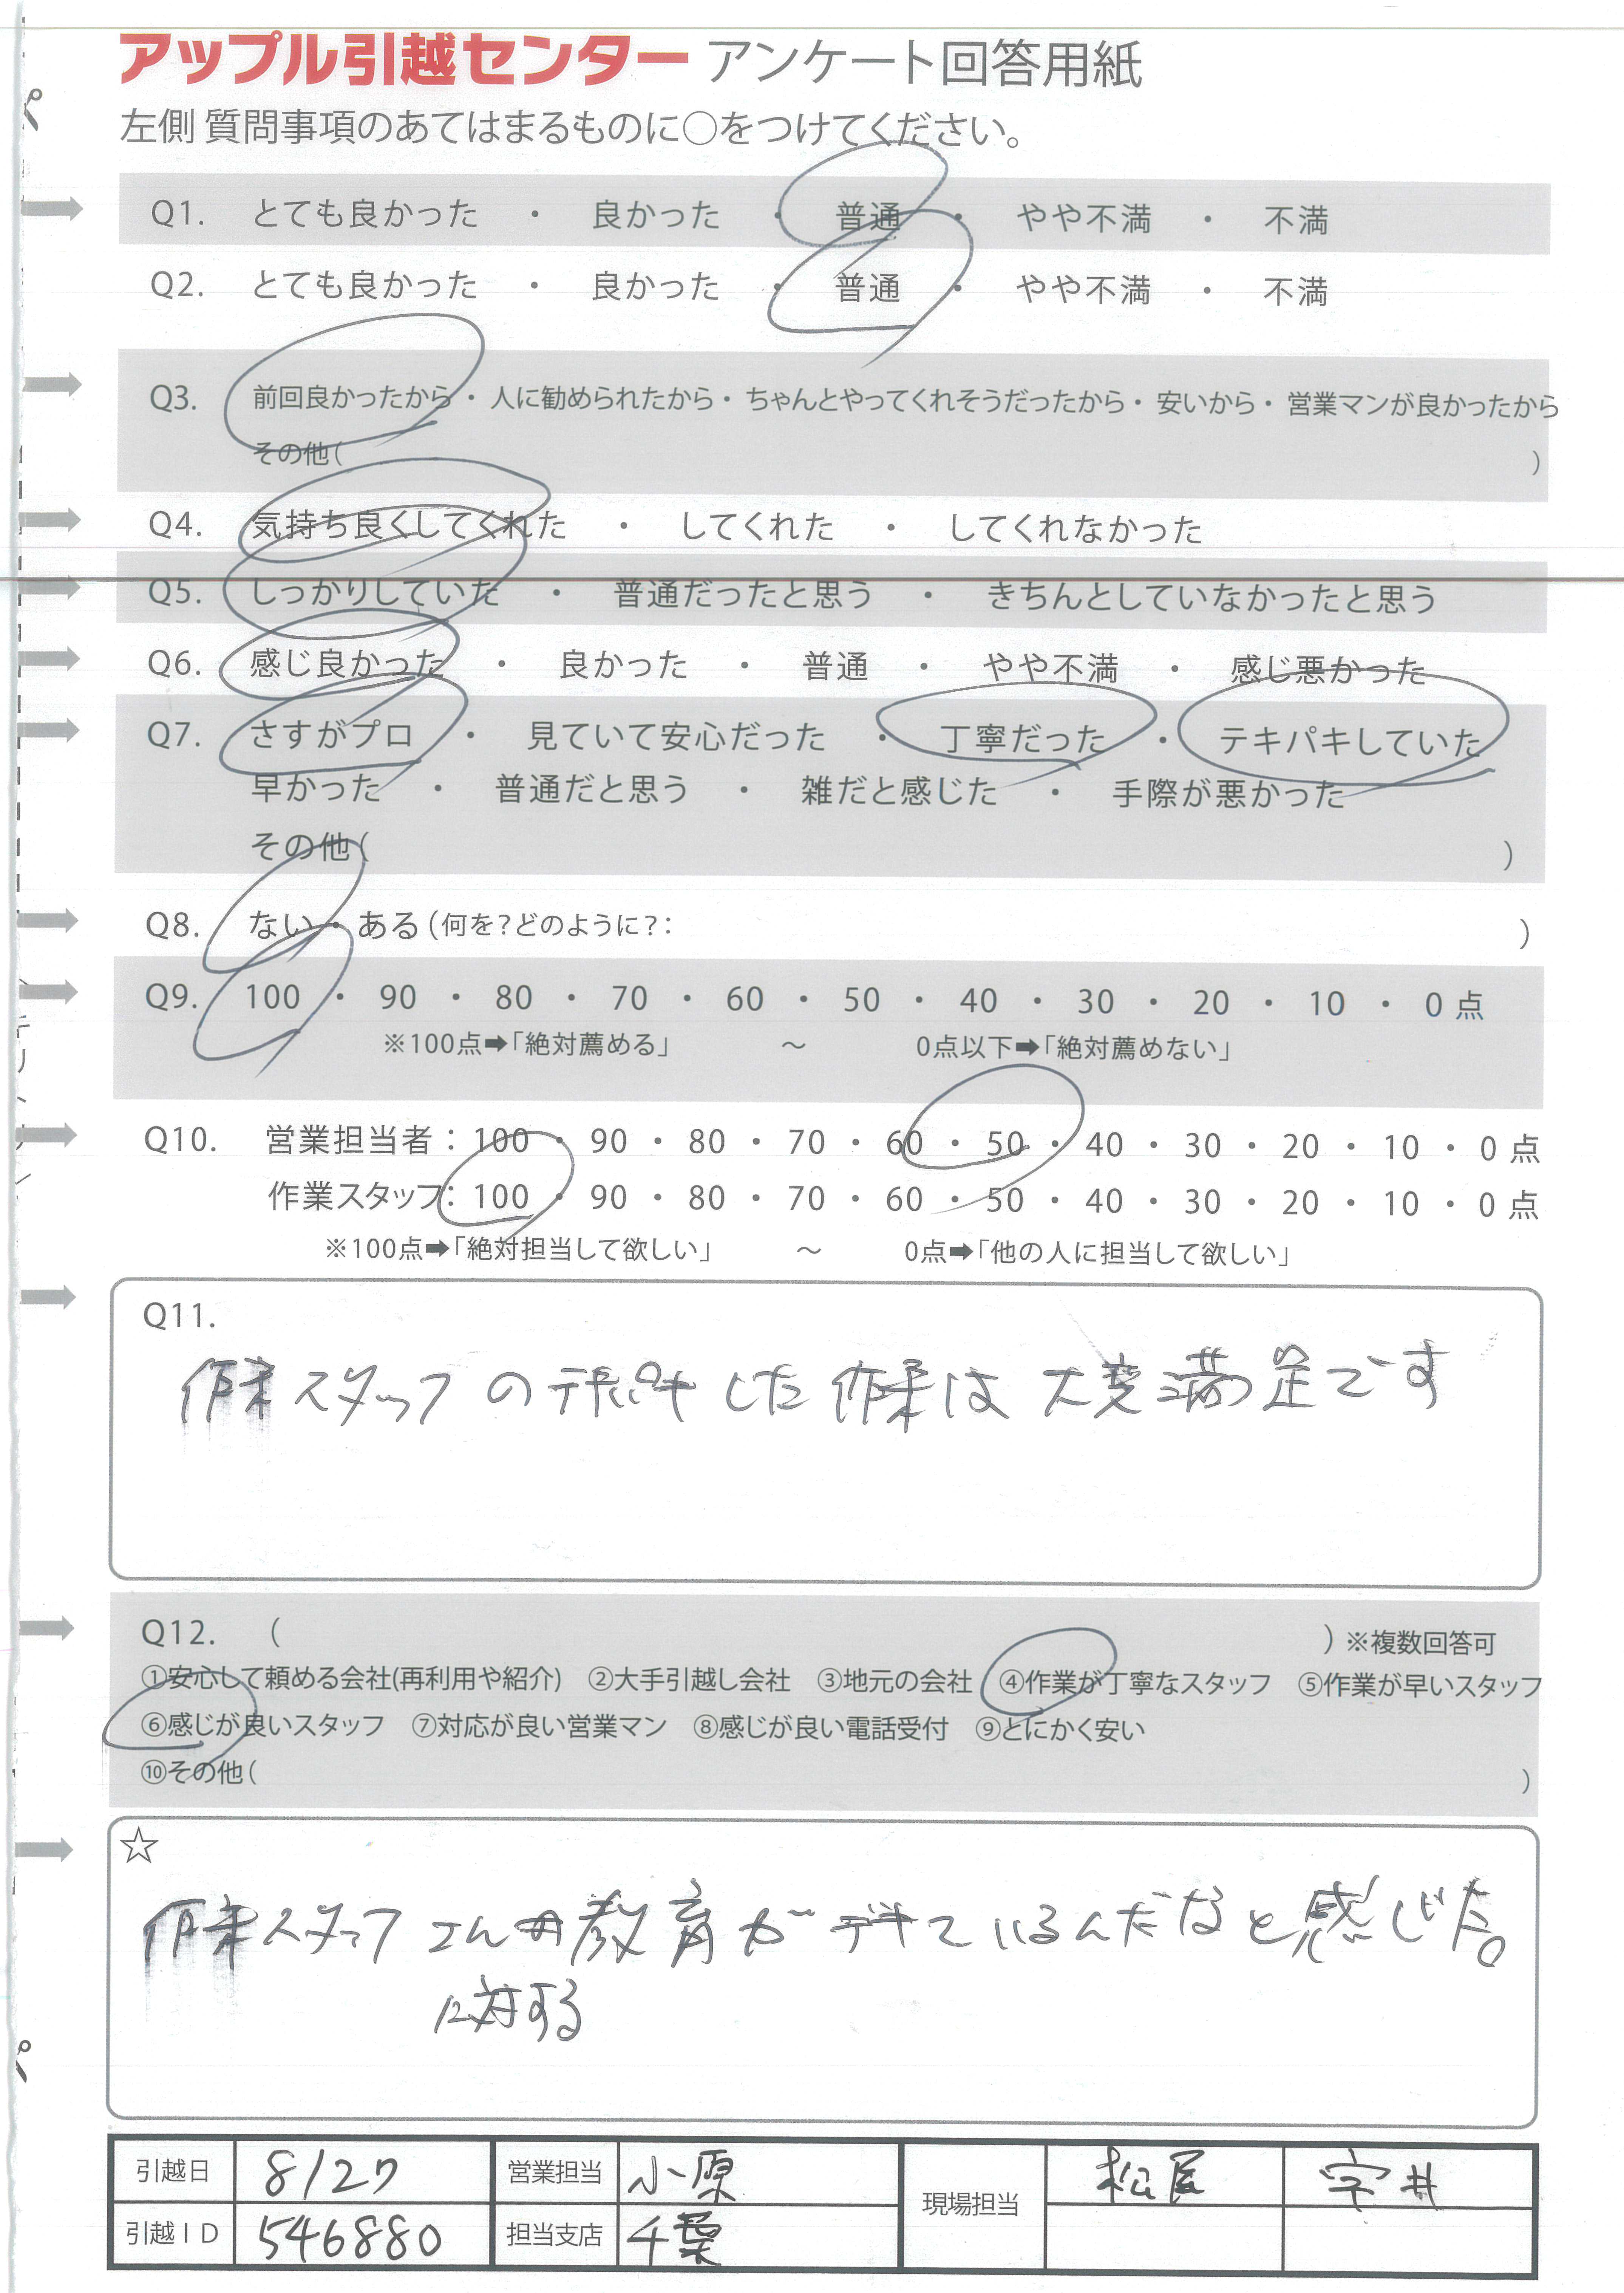 アップル引越センター アンケート回答用紙
左側 質問事項のあてはまるものに○をつけてください。
Q1. とても良かった ・ 良かった ・ 普通 ・ やや不満 ・ 不満
Q2. とても良かった ・ 良かった ・ 普通 ・ やや不満 ・ 不満
Q3. 前回良かったから ・ 人に勧められたから ・ ちゃんとやってくれそうだったから ・ 安いから ・ 営業マンが良かったから
その他( )
Q4. 気持ち良くしてくれた ・ してくれた ・ してくれなかった
Q5. しっかりしていた ・ 普通だったと思う ・ きちんとしていなかったと思う
Q6. 感じ良かった ・ 良かった ・ 普通 ・ やや不満 ・ 感じ悪かった
Q7. さすがプロ ・ 見ていて安心だった ・ 丁寧だった ・ テキパキしていた
早かった ・ 普通だと思う ・ 雑だと感じた ・ 手際が悪かった
その他( )
Q8. ない ・ ある(何を?どのように?: )
Q9. 100 ・ 90 ・ 80 ・ 70 ・ 60 ・ 50 ・ 40 ・ 30 ・ 20 ・ 10 ・ 0 点
※100点➡「絶対薦める」 ～ 0点以下➡「絶対薦めない」
Q10. 営業担当者: 100 ・ 90 ・ 80 ・ 70 ・ 60 ・ 50 ・ 40 ・ 30 ・ 20 ・ 10 ・ 0 点
作業スタッフ: 100 ・ 90 ・ 80 ・ 70 ・ 60 ・ 50 ・ 40 ・ 30 ・ 20 ・ 10 ・ 0 点
※100点➡「絶対担当して欲しい」 ～ 0点➡「他の人に担当して欲しい」
Q11.
作業スタッフのテキパキした作業は大変満足です
Q12. ( ) ※複数回答可
①安心して頼める会社(再利用や紹介) ②大手引越し会社 ③地元の会社 ④作業が丁寧なスタッフ ⑤作業が早いスタッフ
⑥感じが良いスタッフ ⑦対応が良い営業マン ⑧感じが良い電話受付 ⑨とにかく安い
⑩その他( )
☆
作業スタッフさんの教育がデキているんだなと感じた。
に対する
引越日 8/27 営業担当 小原 現場担当 松尾 宇井
引越ID 546880 担当支店 千葉